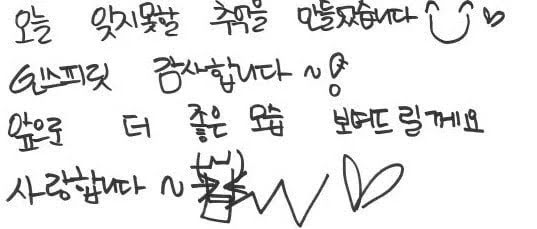 오늘 잊지못할 추억을 만들었습니다
인스피릿 감사합니다~!
앞으로 더 좋은 모습 보여드릴게요
사랑합니다~